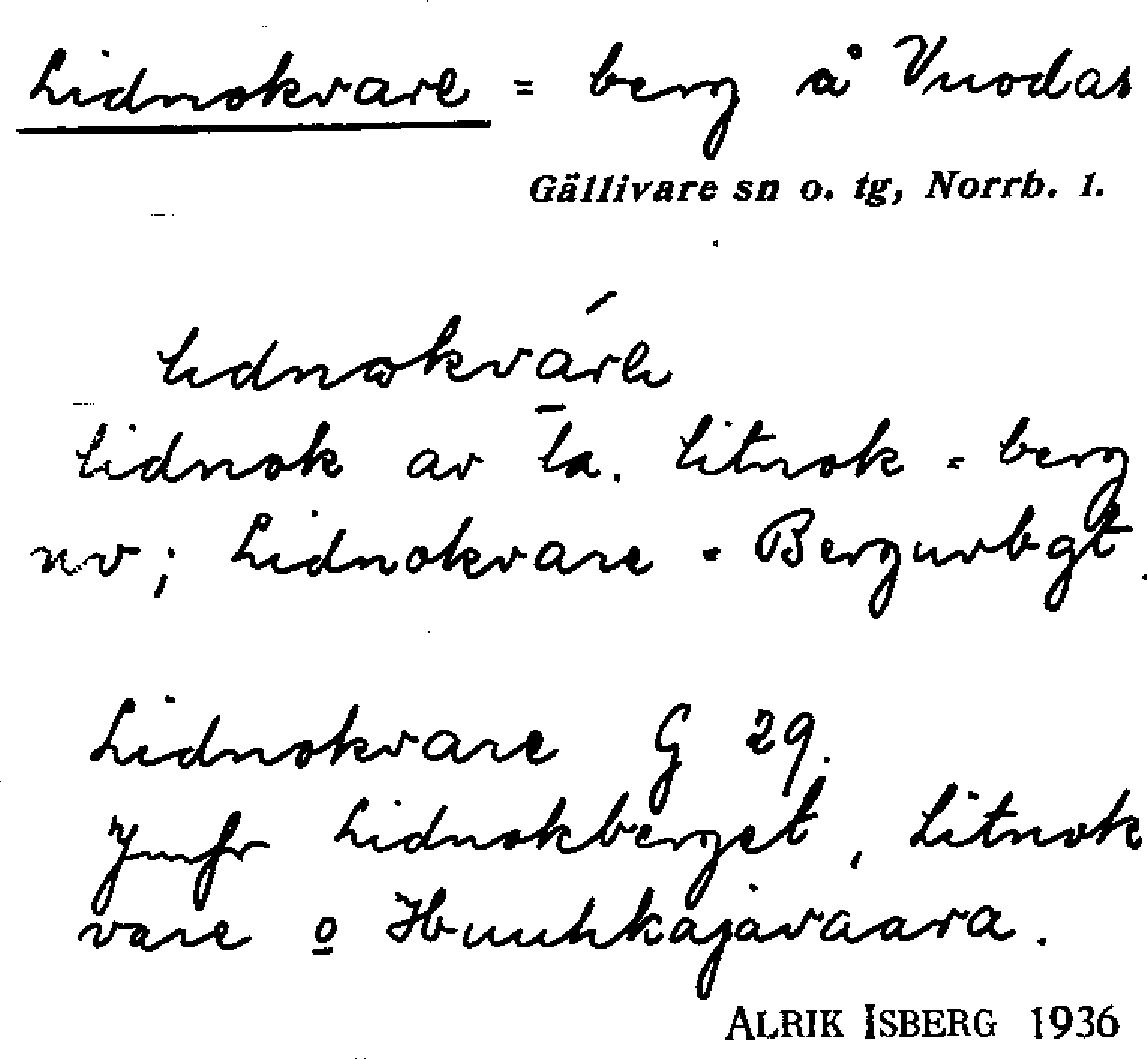 Lidnokvare = berg å Vuodas
Gällivare sn o. tg, Norrb. l.
lidnokvārε
lidnok av la. litnok = berg
uv; Lidnokvare = Berguvbgt.
Lidnokvare G 29.
Jmfr Lidnokberget, Litnok
vare o Huuhkajavaara.
ALRIK ISBERG 1936